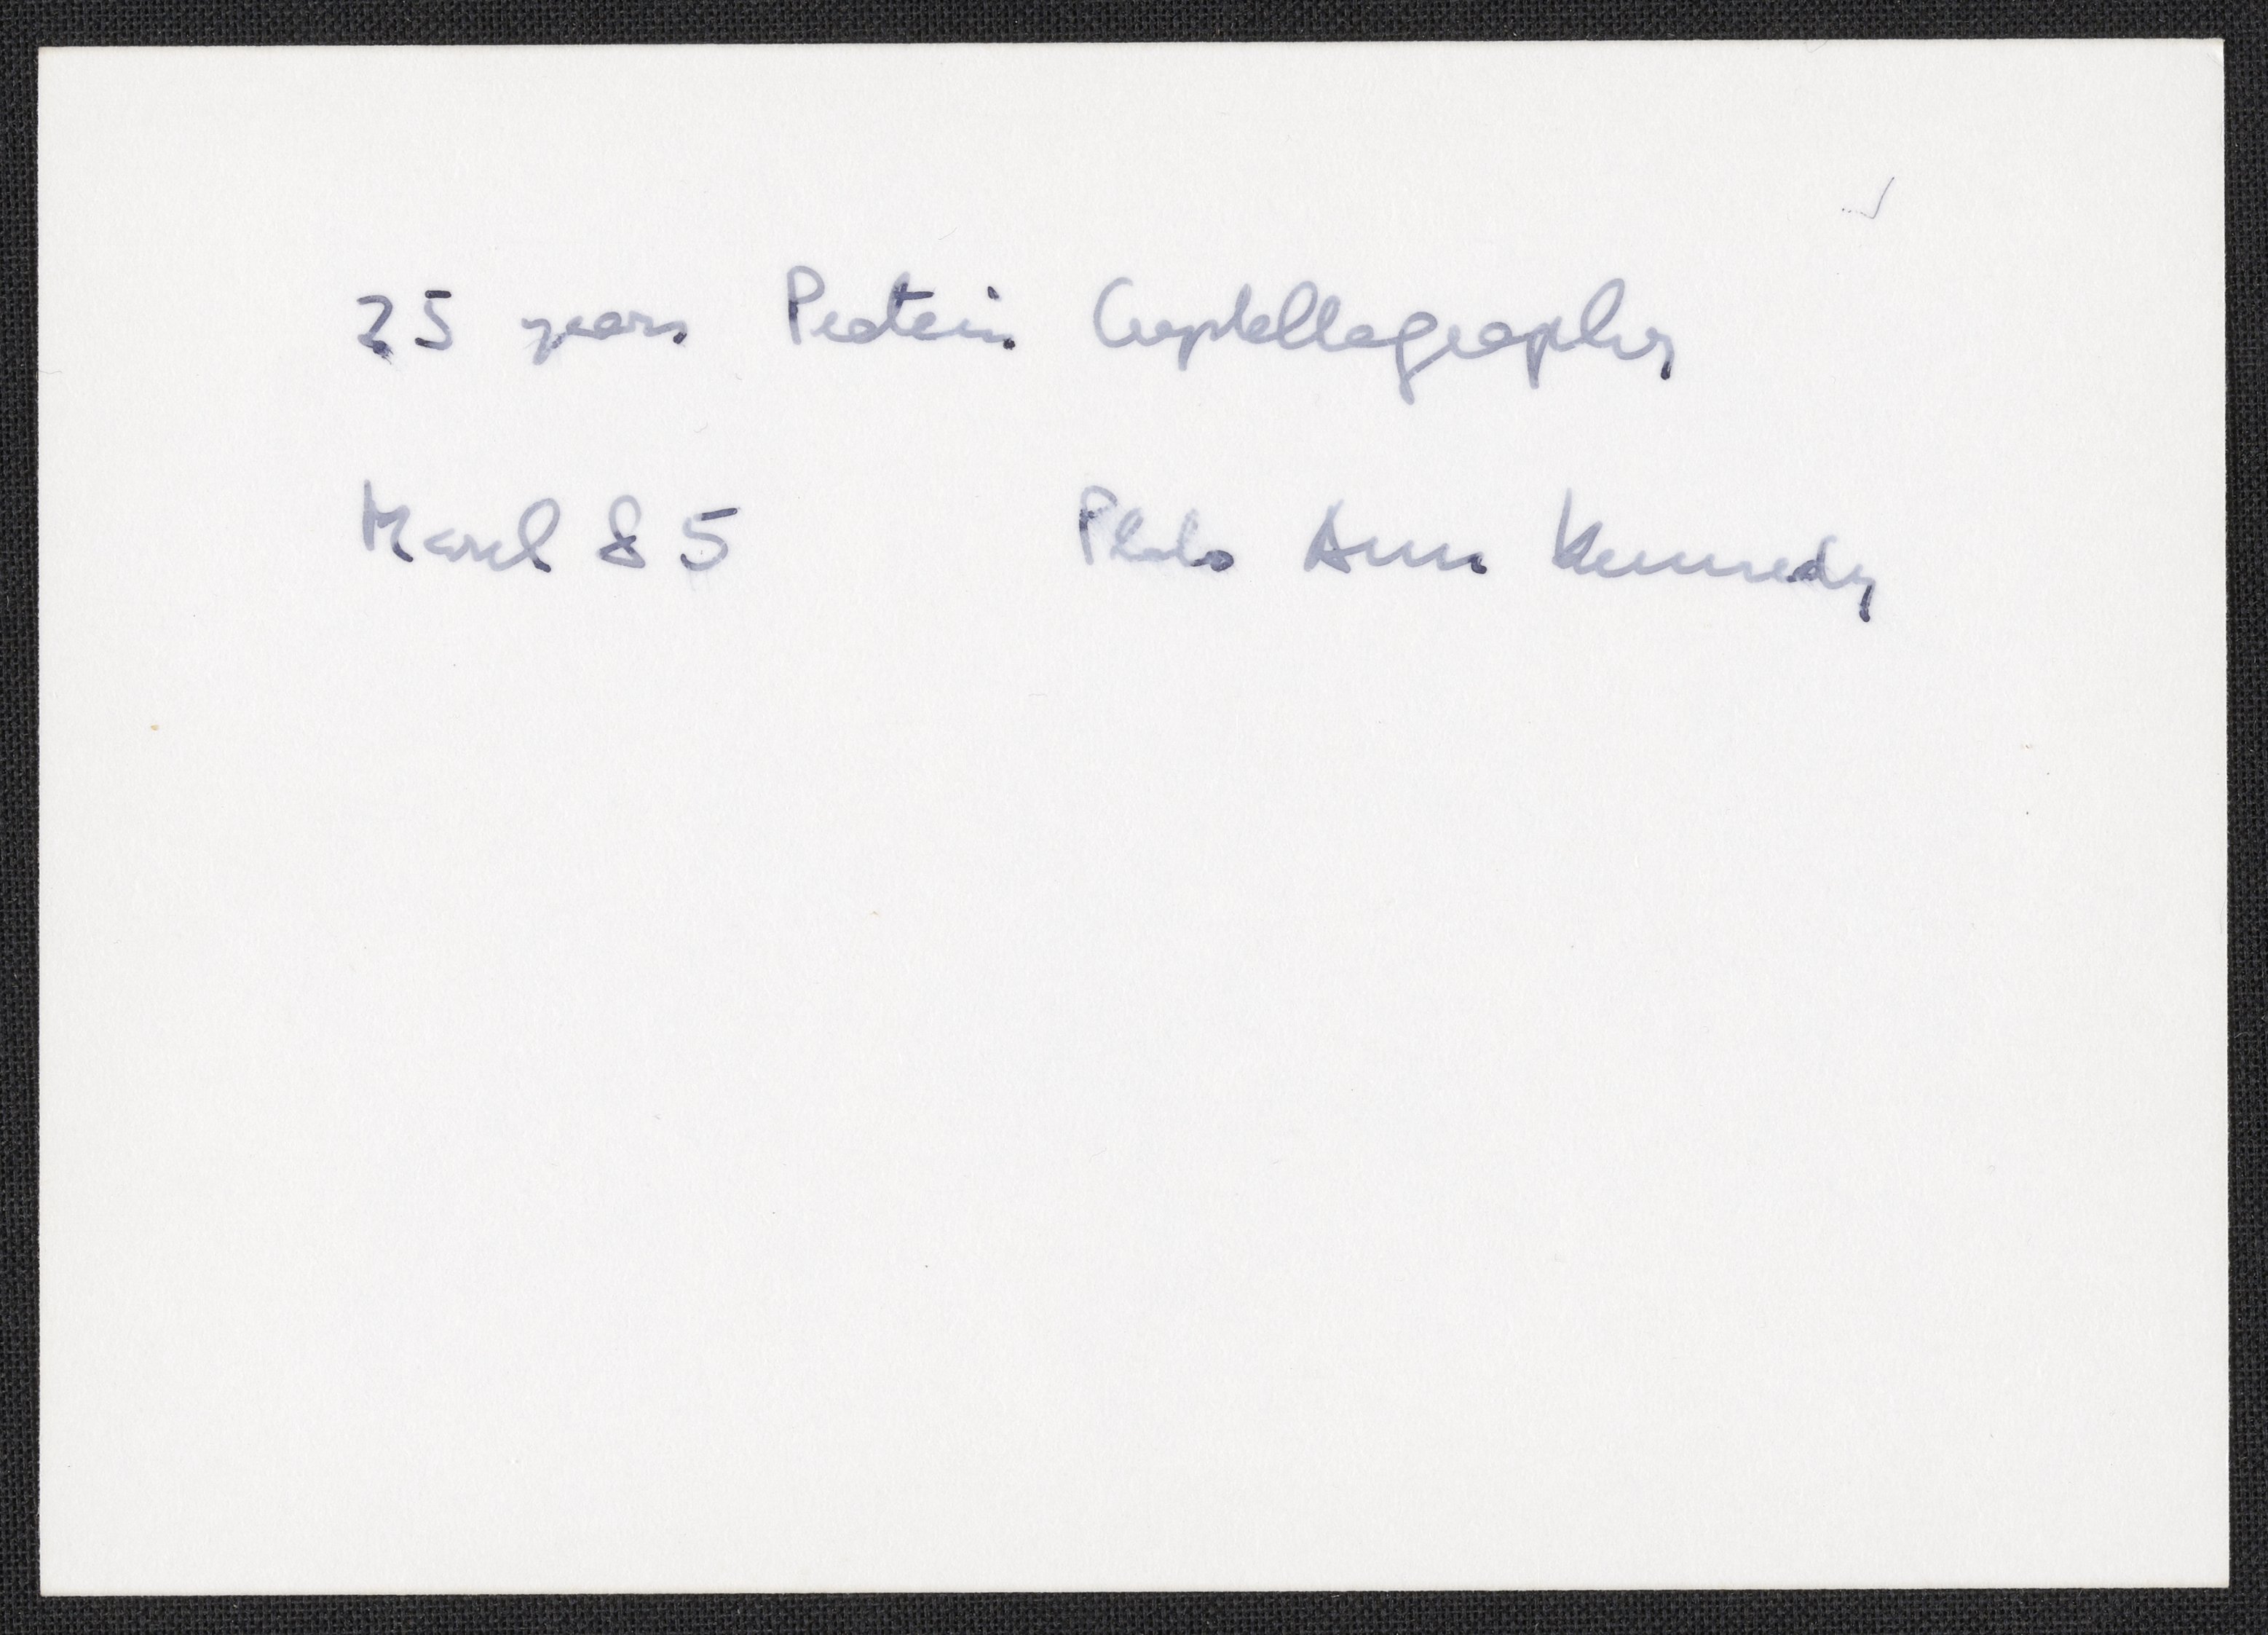 25 years Protein Crystallography
March 85 Photo Ann Kennedy